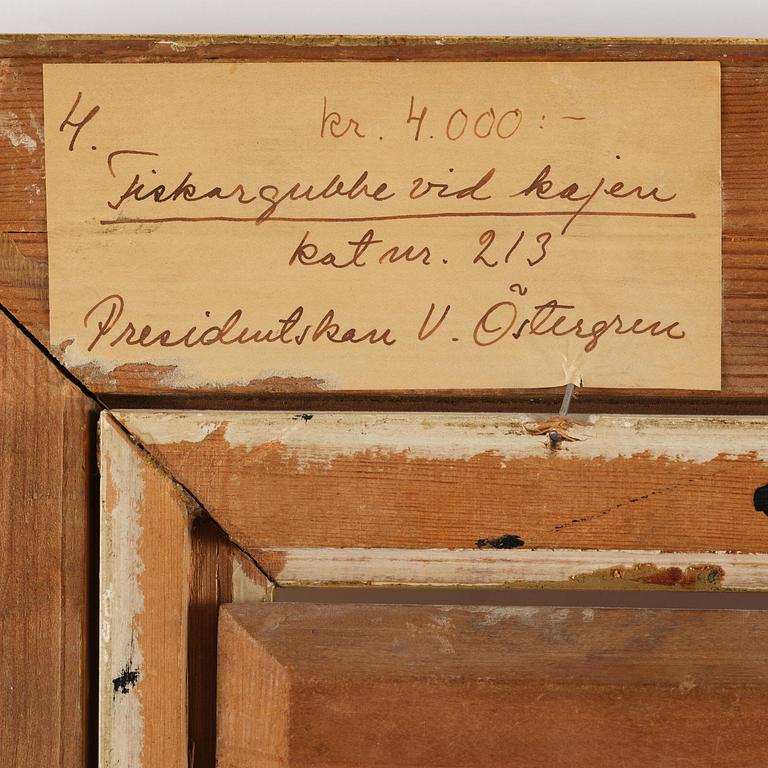 4. kr. 4.000:-
Fiskargubbe vid kajen
kat nr. 213
Presidentskan V. Östergren